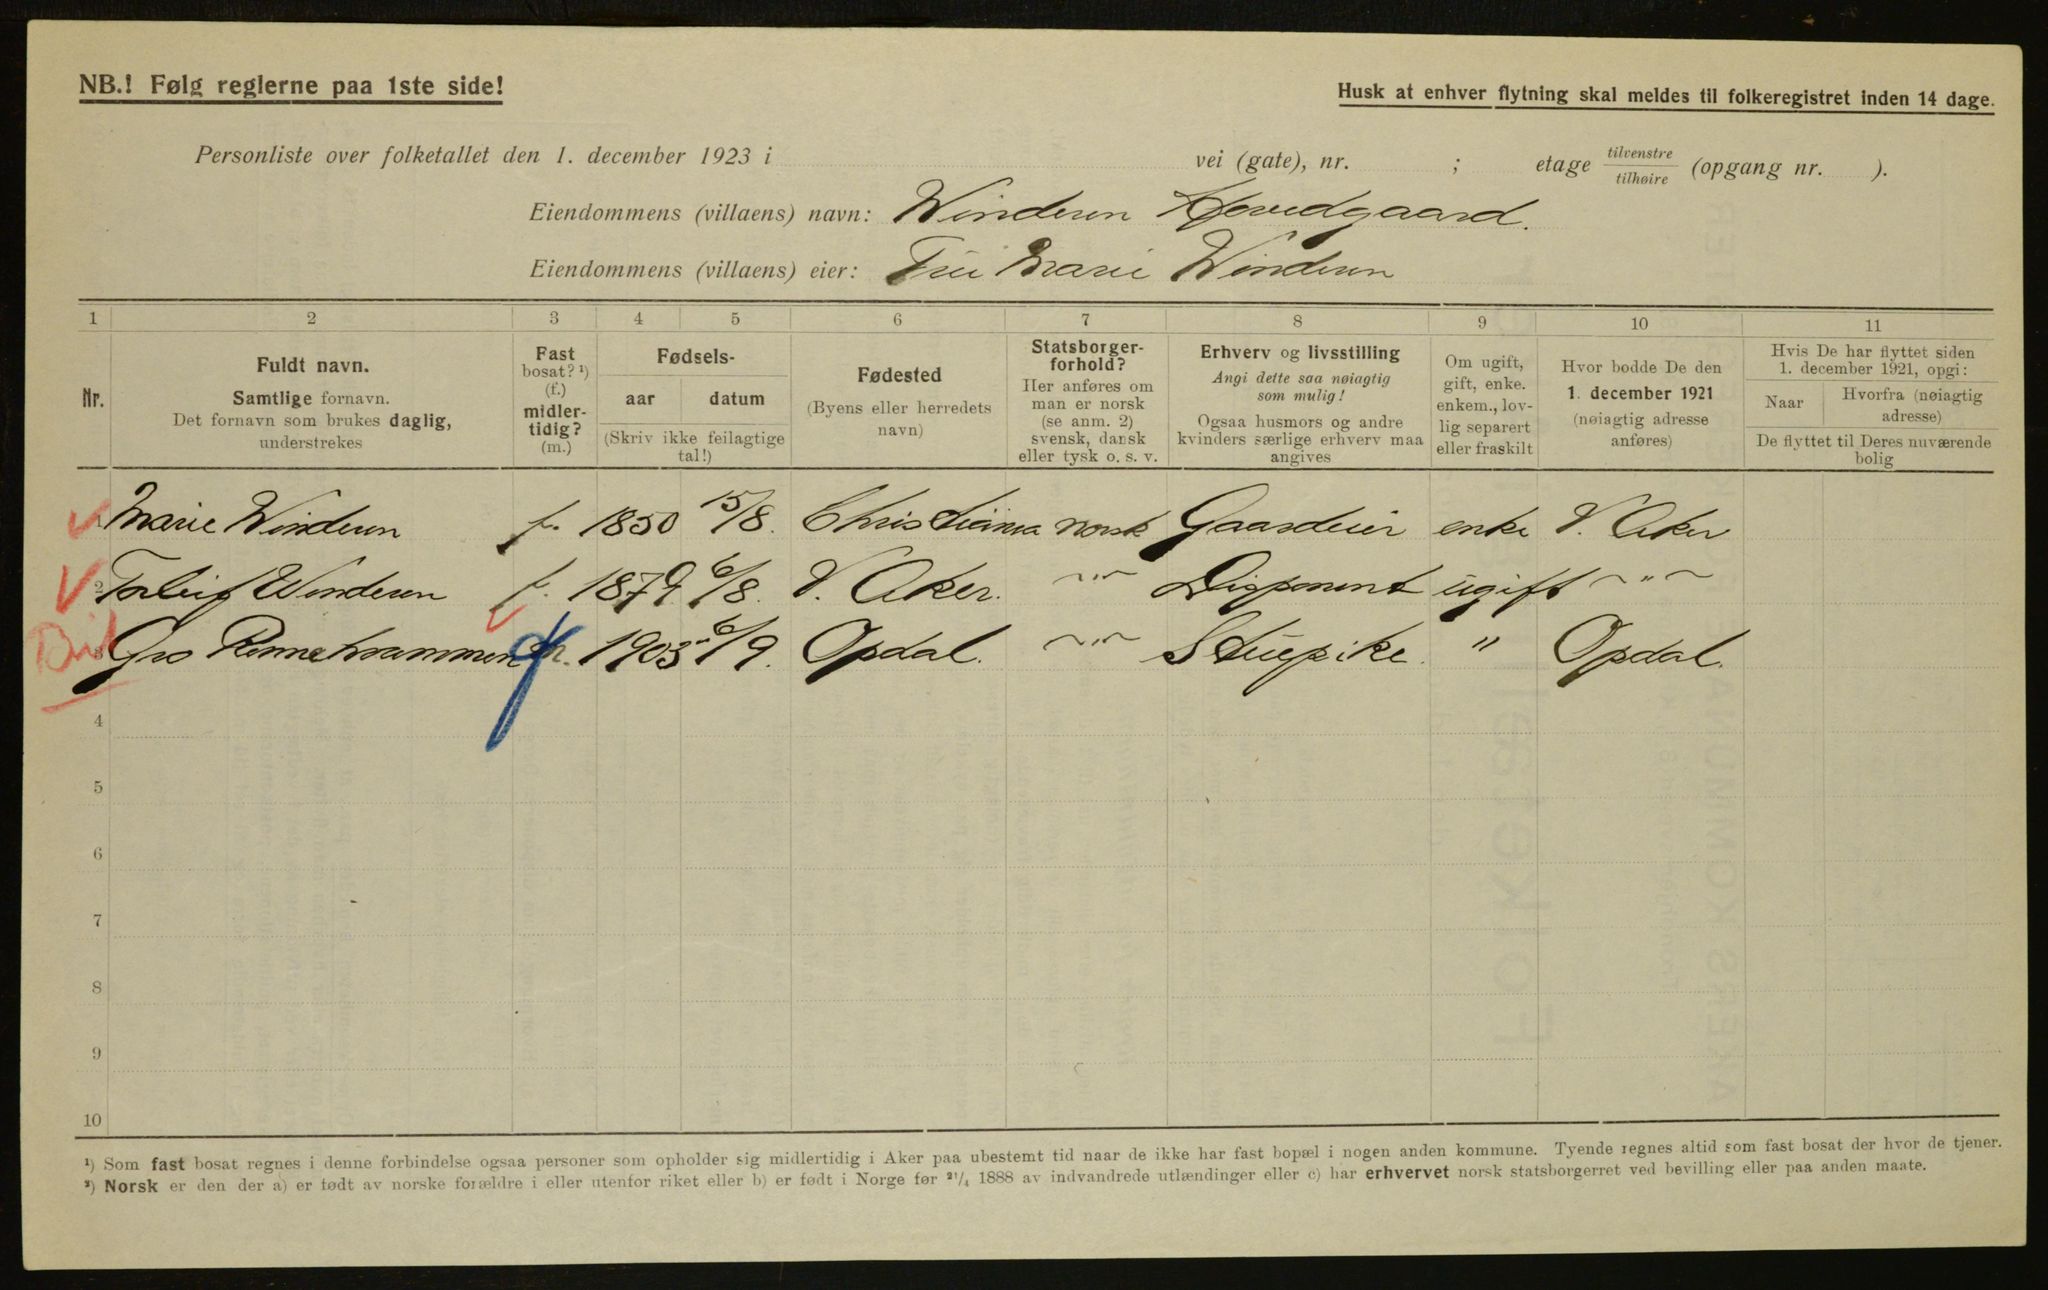 NB.! Følg reglerne paa 1ste side!
Husk at enhver flytning skal meldes til folkeregistret inden 14 dage.
Personliste over folketallet den 1. december 1923 i vei (gate), nr. ; etage tilvenstre tilhøire (opgang nr. ).
Eiendommens (villaens) navn: Winderen Hovedgaard.
Eiendommens (villaens) eier: Fru Marie Winderen
1 2 3 4 5 6 7 8 9 10 11
Nr.
Fuldt navn.
Samtlige fornavn.
Det fornavn som brukes daglig,
understrekes
Fast
bosat? ¹)
(f.)
midler-
tidig?
(m.)
Fødsels-
aar datum
(Skriv ikke feilagtige
tal!)
Fødested
(Byens eller herredets
navn)
Statsborger-
forhold?
Her anføres om
man er norsk
(se anm. 2)
svensk, dansk
eller tysk o. s. v.
Erhverv og livsstilling
Angi dette saa nøiagtig
som mulig!
Ogsaa husmors og andre
kvinders særlige erhverv maa
angives
Om ugift,
gift, enke.
enkem., lov-
lig separert
eller fraskilt
Hvor bodde De den
1. december 1921
(nøiagtig adresse
anføres)
Hvis De har flyttet siden
1. december 1921, opgi:
Naar
Hvorfra (nøiagtig
adresse)
De flyttet til Deres nuværende
bolig
1 Marie Winderen f. 1850 15/8. Christiania norsk Gaardeier enke V. Aker
2 Torleif Winderen f. 1879 6/8. V. Aker. ~"~ Disponent ugift ~"~
3 Gro m. 1903 6/9. Opdal. ~"~ Stuepike. " Opdal.
4
5
6
7
8
9
10
¹) Som fast bosat regnes i denne forbindelse ogsaa personer som opholder sig midlertidig i Aker paa ubestemt tid naar de ikke har fast bopæl i nogen anden kommune. Tyende regnes altid som fast bosat der hvor de tjener.
²) Norsk er den der a) er født av norske forældre i eller utenfor riket eller b) er født i Norge før ²¹/₄ 1888 av indvandrede utlændinger eller c) har erhvervet norsk statsborgerret ved bevilling eller paa anden maate.